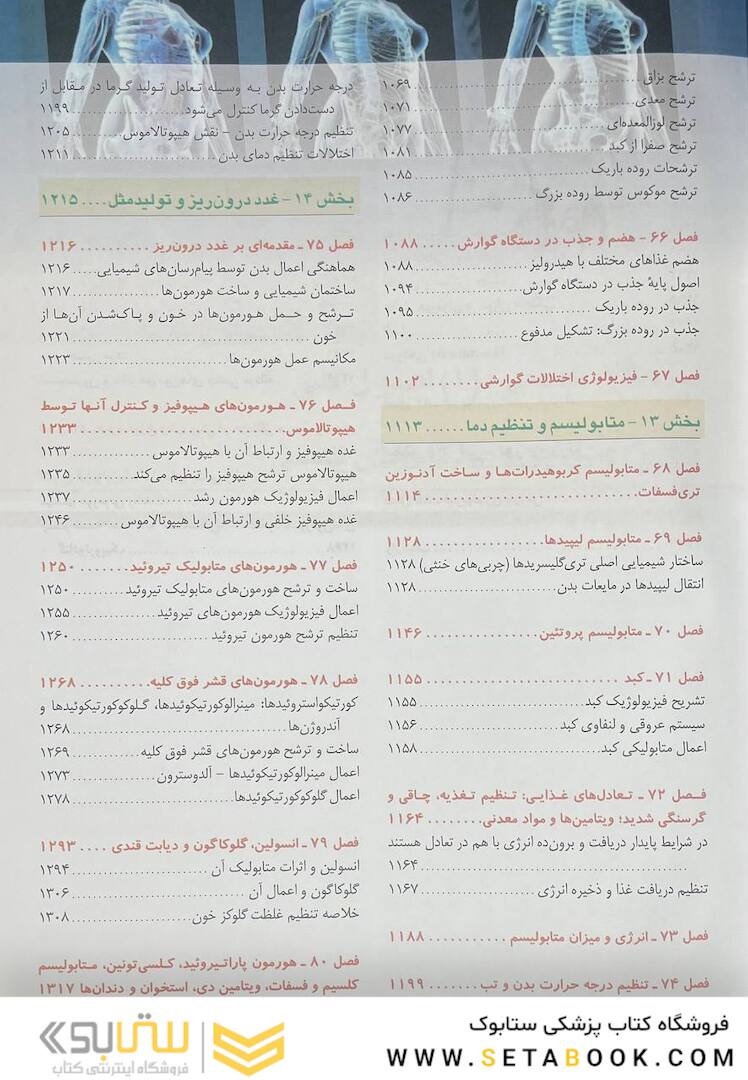 ترشح بزاق ........ ۱۰۶۹
ترشح معدی ........ ۱۰۷۱
ترشح لوزالمعده‌ای ........ ۱۰۷۷
ترشح صفرا از کبد ........ ۱۰۸۱
ترشحات روده باریک ........ ۱۰۸۵
ترشح موکوس توسط روده بزرگ ........ ۱۰۸۶
فصل ۶۶ - هضم و جذب در دستگاه گوارش ..... ۱۰۸۸
هضم غذاهای مختلف با هیدرولیز ........ ۱۰۸۸
اصول پایهٔ جذب در دستگاه گوارش ........ ۱۰۹۴
جذب در روده باریک ........ ۱۰۹۵
جذب در روده بزرگ: تشکیل مدفوع ........ ۱۱۰۰
فصل ۶۷ - فیزیولوژی اختلالات گوارشی ........ ۱۱۰۲
بخش ۱۳ - متابولیسم و تنظیم دما ...... ۱۱۱۳
فصل ۶۸ ـ متابولیسم کربوهیدرات‌ها و ساخت آدنوزین
تری‌فسفات ........ ۱۱۱۴
فصل ۶۹ ـ متابولیسم لیپیدها ........ ۱۱۲۸
ساختار شیمیایی اصلی تری‌گلیسریدها (چربی‌های خنثی) ۱۱۲۸
انتقال لیپیدها در مایعات بدن ........ ۱۱۲۸
فصل ۷۰ ـ متابولیسم پروتئین ........ ۱۱۴۶
فصل ۷۱ ـ کبد ........ ۱۱۵۵
تشریح فیزیولوژیک کبد ........ ۱۱۵۵
سیستم عروقی و لنفاوی کبد ........ ۱۱۵۶
اعمال متابولیکی کبد ........ ۱۱۵۸
فصل ۷۲ ـ تعادل‌های غذایی: تنظیم تغذیه، چاقی و
گرسنگی شدید؛ ویتامین‌ها و مواد معدنی ........ ۱۱۶۴
در شرایط پایدار دریافت و برون‌ده انرژی با هم در تعادل هستند
........ ۱۱۶۴
تنظیم دریافت غذا و ذخیره انرژی ........ ۱۱۶۷
فصل ۷۳ ـ انرژی و میزان متابولیسم ........ ۱۱۸۸
فصل ۷۴ ـ تنظیم درجه حرارت بدن و تب ........ ۱۱۹۹
درجه حرارت بدن به وسیله تعادل تولید گرما در مقابل از
دست‌دادن گرما کنترل می‌شود ........ ۱۱۹۹
تنظیم درجه حرارت بدن - نقش هیپوتالاموس ........ ۱۲۰۵
اختلالات تنظیم دمای بدن ........ ۱۲۱۱
بخش ۱۴ - غدد درون‌ریز و تولیدمثل .... ۱۲۱۵
فصل ۷۵ ـ مقدمه‌ای بر غدد درون‌ریز ........ ۱۲۱۶
هماهنگی اعمال بدن توسط پیام‌رسان‌های شیمیایی ..... ۱۲۱۶
ساختمان شیمیایی و ساخت هورمون‌ها ........ ۱۲۱۷
ترشح و حمل هورمون‌ها در خون و پاک‌شدن آن‌ها از
خون ........ ۱۲۲۱
مکانیسم عمل هورمون‌ها ........ ۱۲۲۳
فصل ۷۶ ـ هورمون‌های هیپوفیز و کنترل آنها توسط
هیپوتالاموس ........ ۱۲۳۳
غده هیپوفیز و ارتباط آن با هیپوتالاموس ........ ۱۲۳۳
هیپوتالاموس ترشح هیپوفیز را تنظیم می‌کند ........ ۱۲۳۵
اعمال فیزیولوژیک هورمون رشد ........ ۱۲۳۷
غده هیپوفیز خلفی و ارتباط آن با هیپوتالاموس ........ ۱۲۴۶
فصل ۷۷ ـ هورمون‌های متابولیک تیروئید ........ ۱۲۵۰
ساخت و ترشح هورمون‌های متابولیک تیروئید ........ ۱۲۵۰
اعمال فیزیولوژیک هورمون‌های تیروئید ........ ۱۲۵۵
تنظیم ترشح هورمون تیروئید ........ ۱۲۶۰
فصل ۷۸ ـ هورمون‌های قشر فوق کلیه ........ ۱۲۶۸
کورتیکواستروئیدها: مینرالوکورتیکوئیدها، گلوکوکورتیکوئیدها و
آندروژن‌ها ........ ۱۲۶۸
ساخت و ترشح هورمون‌های قشر فوق کلیه ........ ۱۲۶۹
اعمال مینرالوکورتیکوئیدها - آلدوسترون ........ ۱۲۷۳
اعمال گلوکوکورتیکوئیدها ........ ۱۲۷۸
فصل ۷۹ ـ انسولین، گلوکاگون و دیابت قندی .... ۱۲۹۳
انسولین و اثرات متابولیک آن ........ ۱۲۹۴
گلوکاگون و اعمال آن ........ ۱۳۰۶
خلاصه تنظیم غلظت گلوکز خون ........ ۱۳۰۸
فصل ۸۰ ـ هورمون پاراتیروئید، کلسی‌تونین، متابولیسم
کلسیم و فسفات، ویتامین دی، استخوان و دندان‌ها ۱۳۱۷
فروشگاه کتاب پزشکی ستابوک
WWW.SETABOOK.COM
ستابوک
فروشگاه اینترنتی کتاب